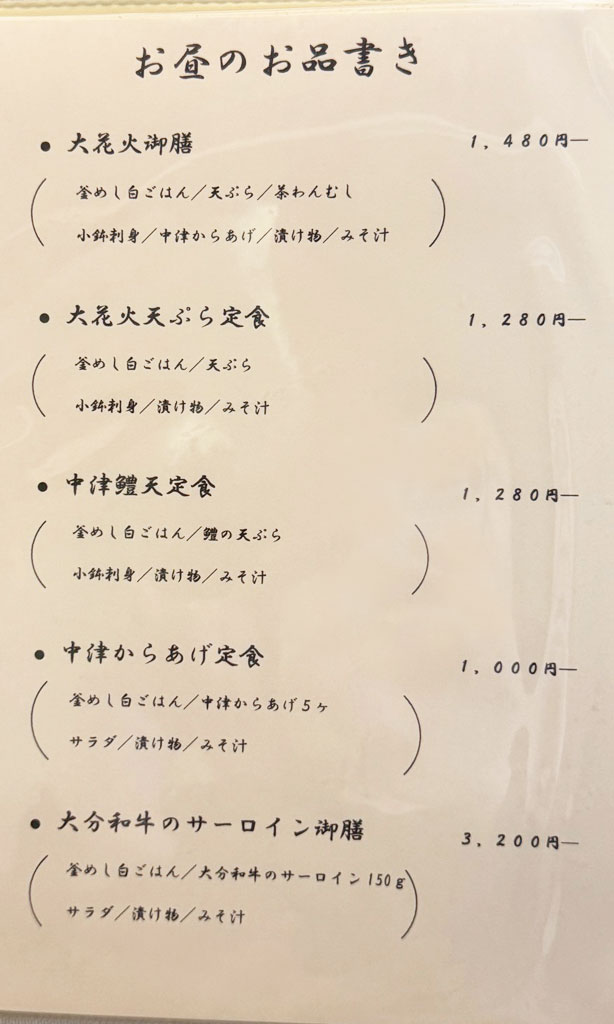 お昼のお品書き
● 大花火御膳 1,480円―
釜めし白ごはん/天ぷら/茶わんむし
小鉢刺身/中津からあげ/漬け物/みそ汁
● 大花火天ぷら定食 1,280円―
釜めし白ごはん/天ぷら
小鉢刺身/漬け物/みそ汁
● 中津鱧天定食 1,280円―
釜めし白ごはん/鱧の天ぷら
小鉢刺身/漬け物/みそ汁
● 中津からあげ定食 1,000円―
釜めし白ごはん/中津からあげ5ヶ
サラダ/漬け物/みそ汁
● 大分和牛のサーロイン御膳 3,200円―
釜めし白ごはん/大分和牛のサーロイン150g
サラダ/漬け物/みそ汁